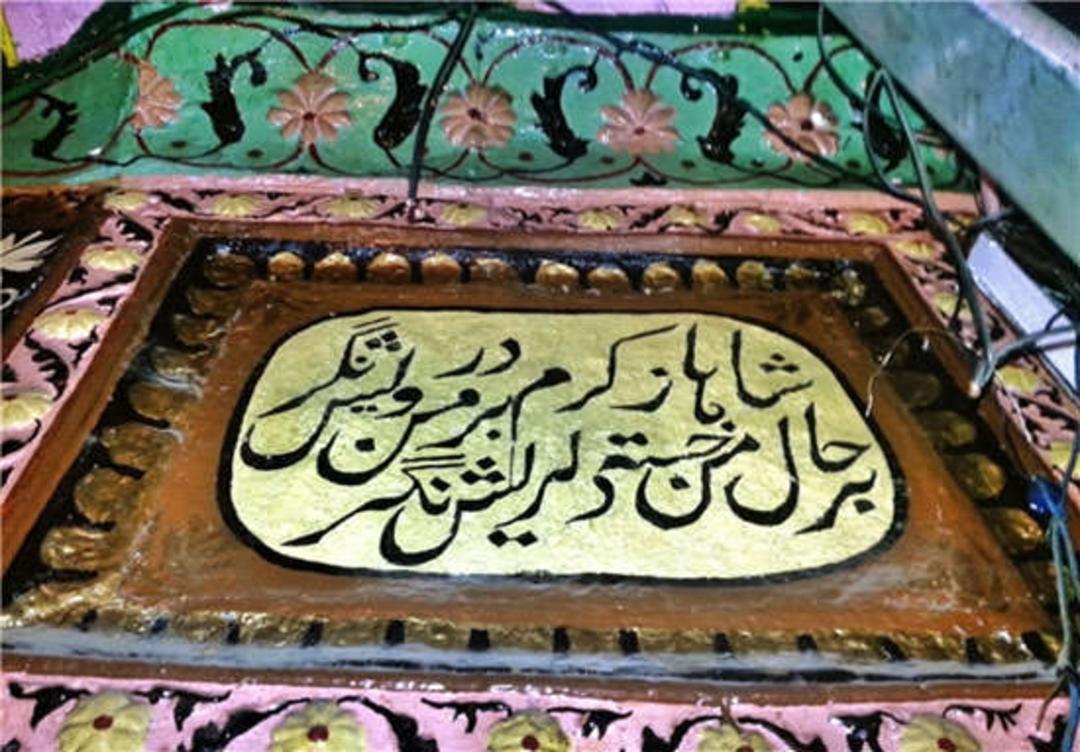 شاها ز کرم بر من درویش نگر
بر حال من خسته دلریش نگر